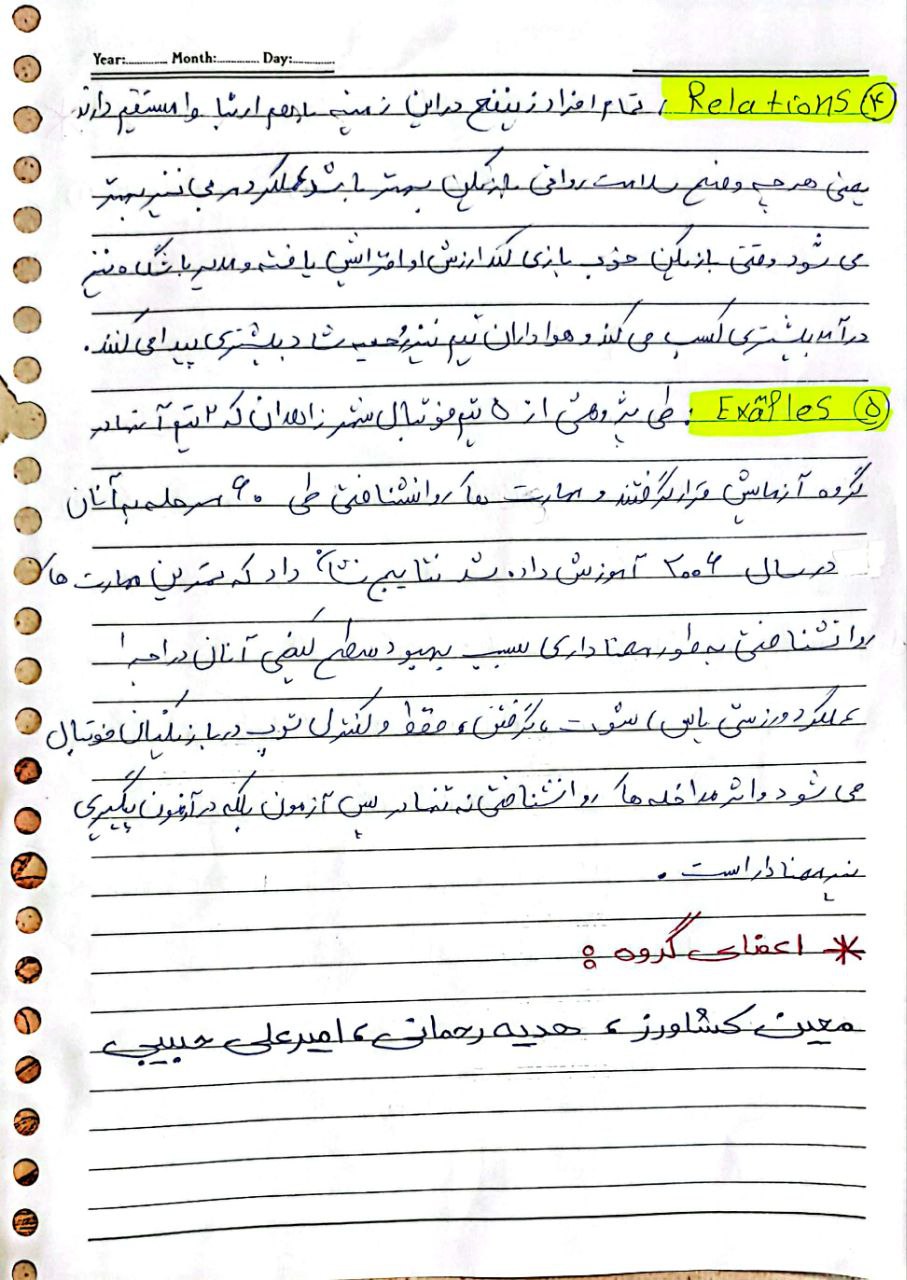 Year:............ Month:............ Day:............
④ Relations: تمام افراد ذینفع در این زمینه با هم ارتباط مستقیم دارند
یعنی هر چه وضع سلامت روانی بازیکن بهتر باشد عملکرد مربی نیز بهتر
می شود وقتی بازیکن خوب بازی کند ارزش او افزایش یافته و مدیر باشگاه نیز
درآمد بیشتری کسب می کند و هواداران تیم نیز روحیه شاد بیشتری پیدا می کنند.
⑤ Examples: طی پژوهشی از ۵ تیم فوتبال شهر زاهدان که ۲ تیم آنها در
گروه آزمایش قرار گرفتند و مهارت های روانشناختی طی ۶۰ مرحله به آنان
در سال ۲۰۰۶ آموزش داده شد نتایج نشان داد که تمرین مهارت های
روانشناختی به طور معناداری سبب بهبود سطح کیفی آنان در اجرا
عملکرد ورزشی پاس، شوت، گرفتن، حفظ و کنترل توپ در بازیکنان فوتبال
می شود و اثر مداخله های روانشناختی نه تنها در پس آزمون بلکه در آزمون پیگیری
نیز معنادار است.
* اعضای گروه :
معین کشاورز، هدیه رحمانی، امیرعلی حبیبی